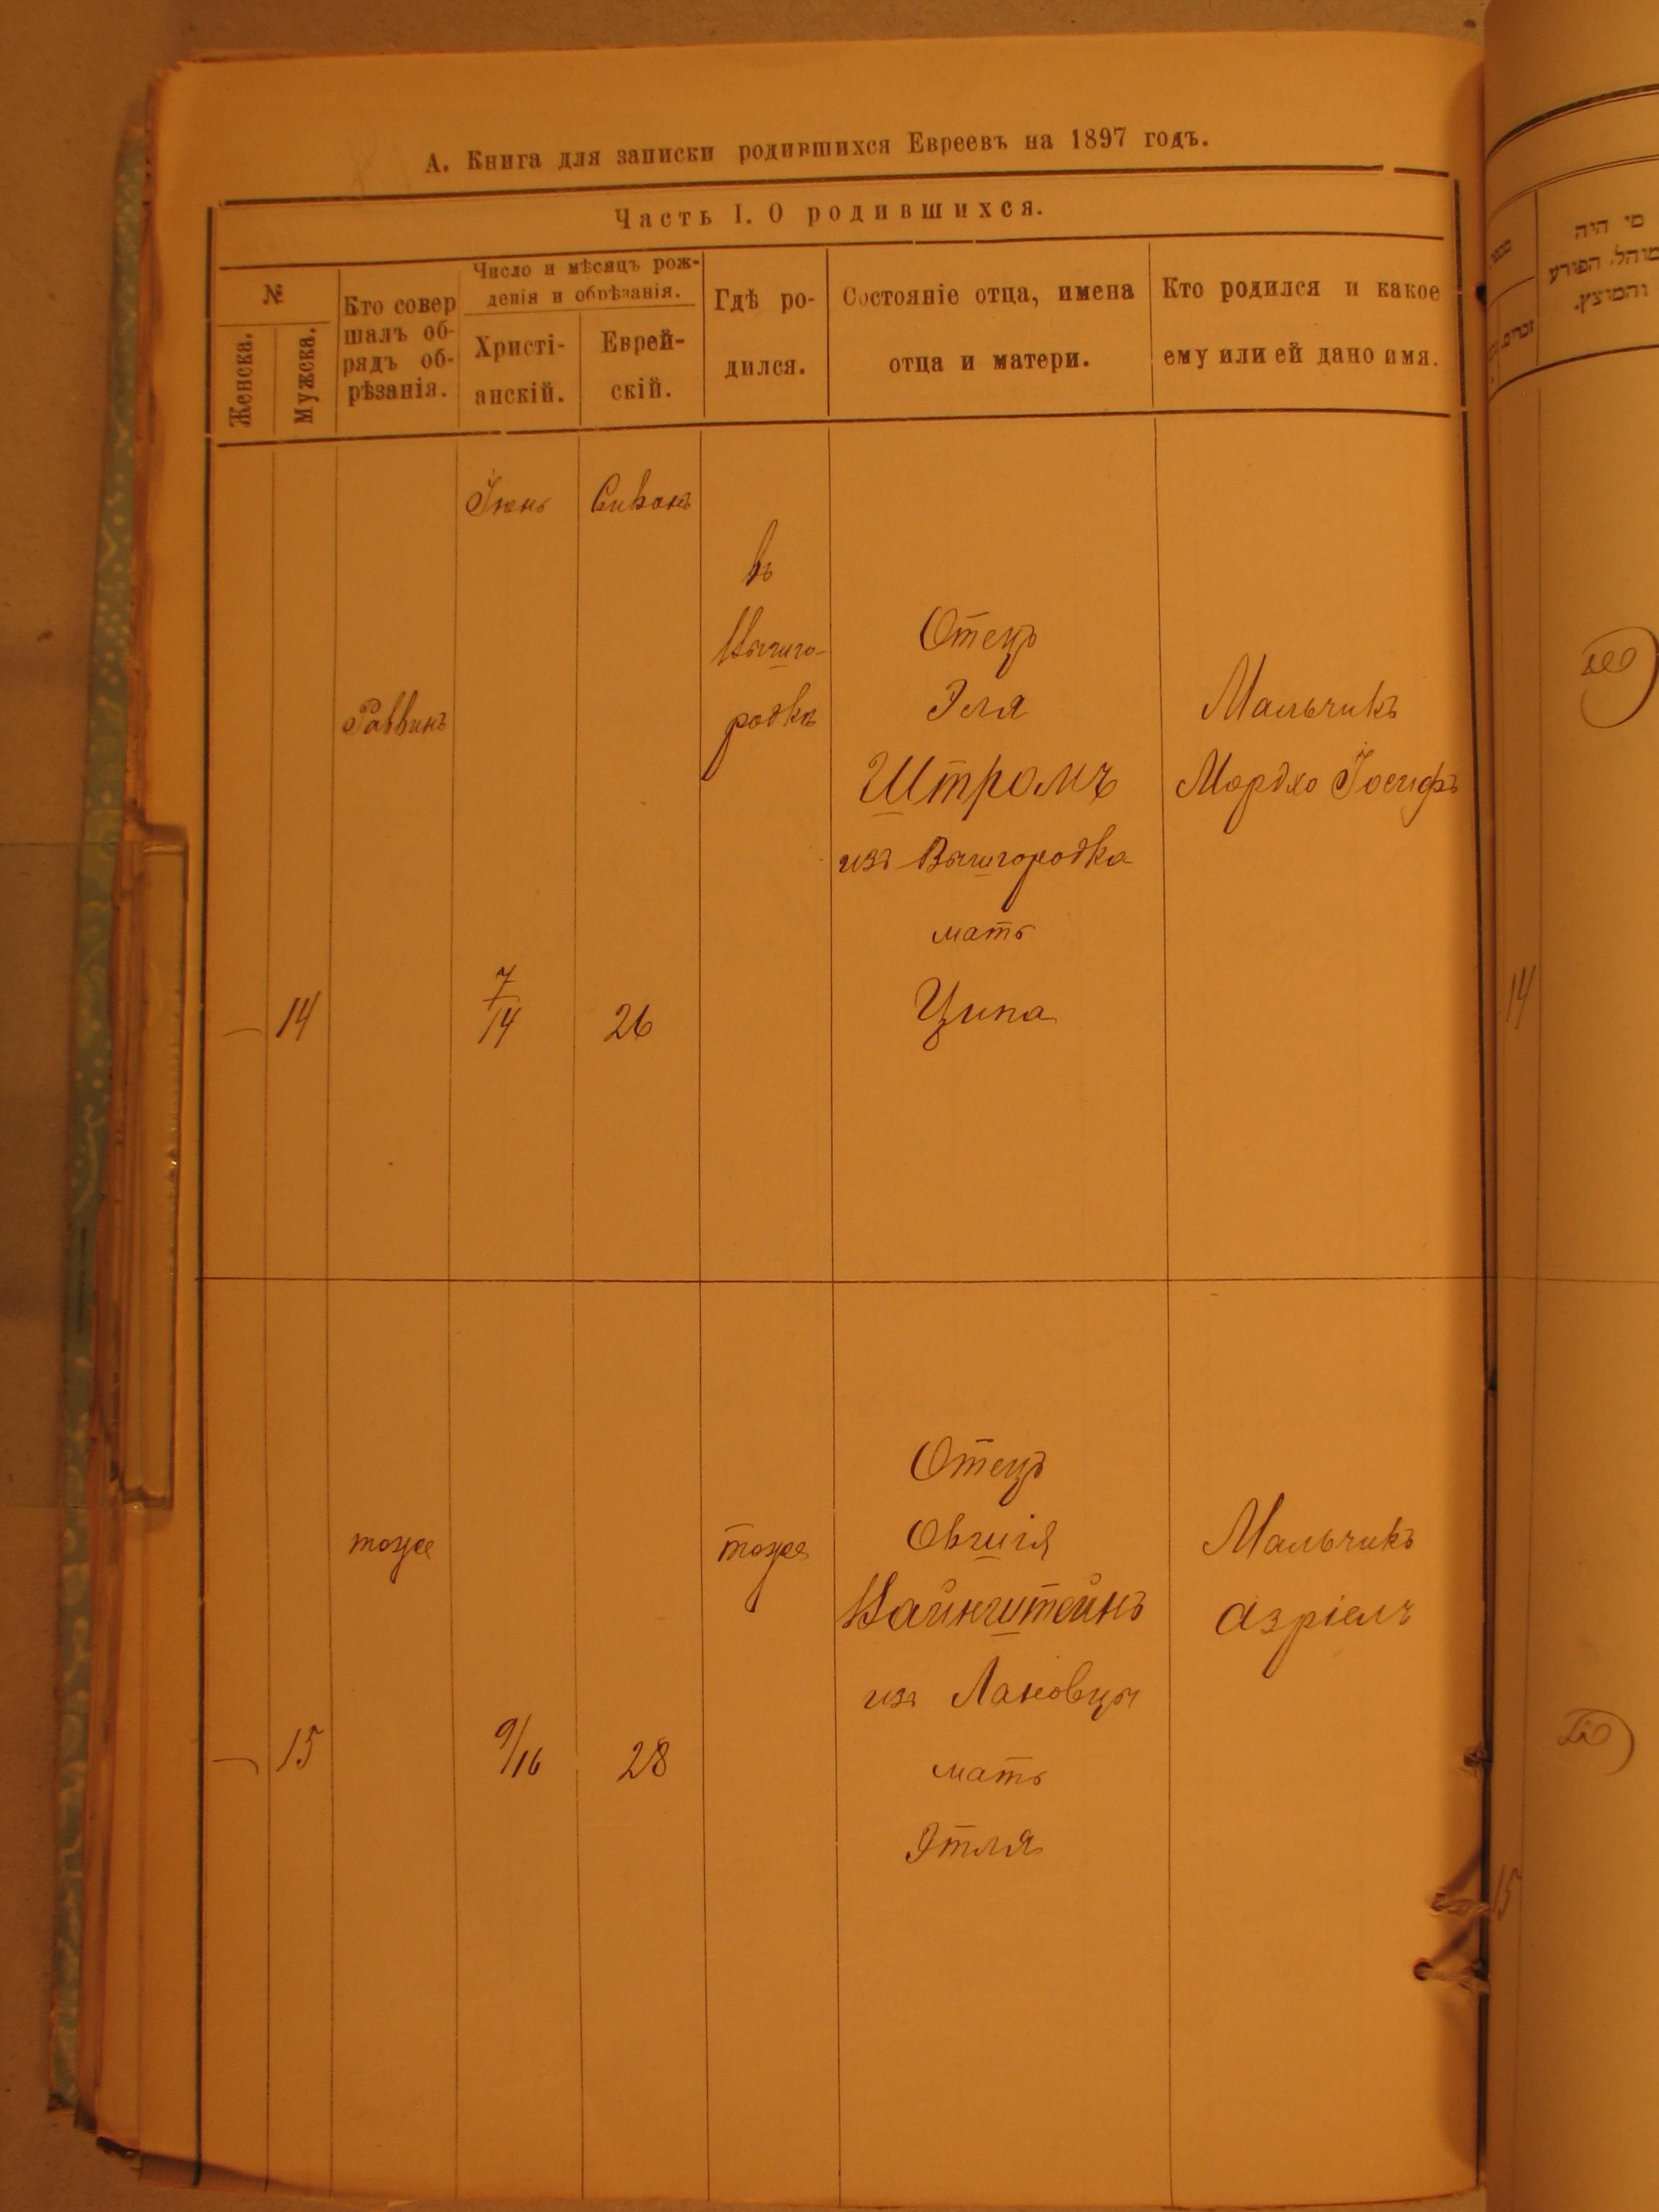 А. Книга для записки родившихся Евреевъ на 1897 годъ.
Часть I. О родившихся.
№
Женска.
Мужска.
Кто совер
шалъ об-
рядъ об-
рѣзанія.
Число и мѣсяцъ рож-
денія и обрѣзанія.
Христі-
анскій.
Еврей-
скій.
Гдѣ ро-
дился.
Состояніе отца, имена
отца и матери.
Кто родился и какое
ему или ей дано имя.
Іюнь
Сивонъ
въ
Вышго-
родкѣ
Раввинъ
Отецъ
Эля
Штромъ
изъ Вышгородка
мать
Ципа
Мальчикъ
Мордко Іосифъ
— 14
7/14
26
тоже
тоже
Отецъ
Овшія
Вайнштейнъ
изъ Лановцы
мать
Этля
Мальчикъ
Азріелъ
— 15
9/16
28
מי היה
המוהל, הפורע
והמוצץ.
זכרים
14
15